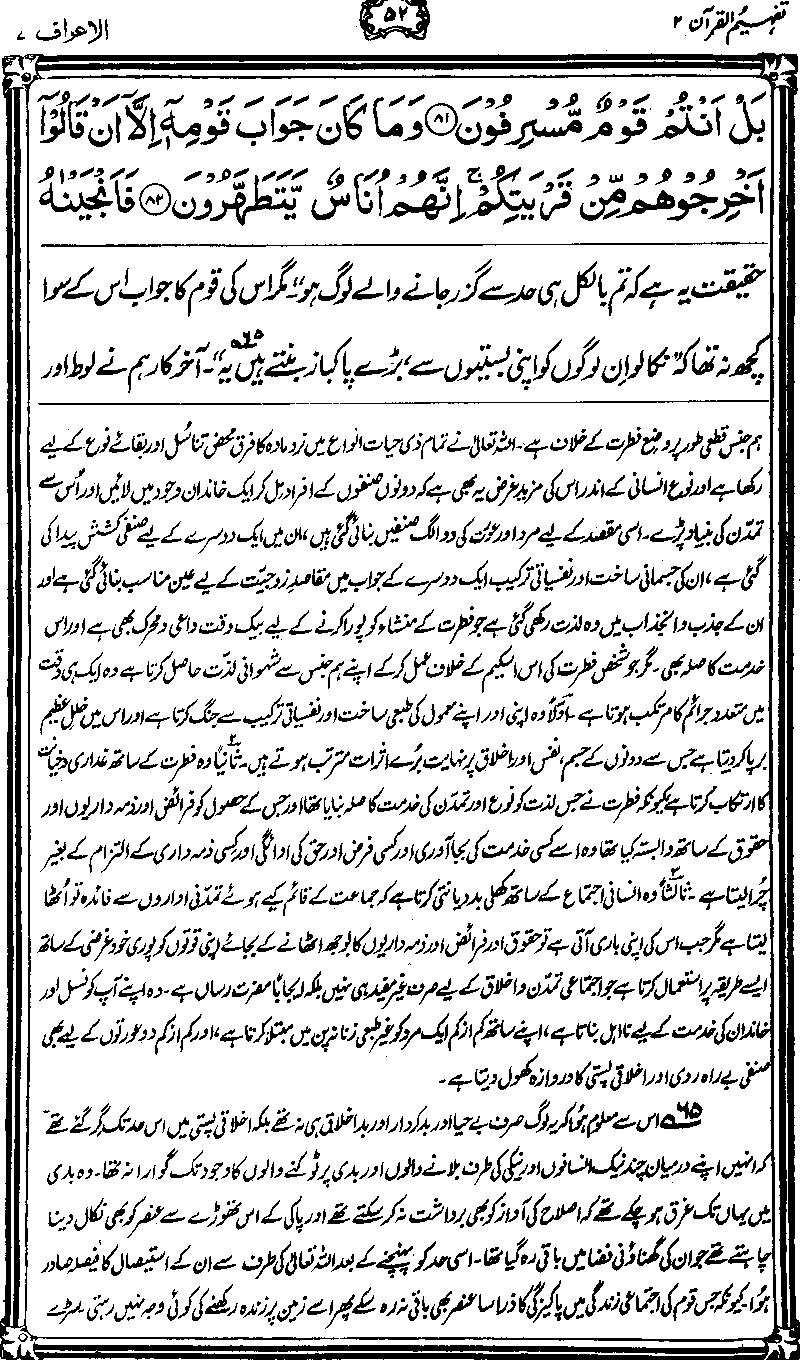 تفہیم القرآن ۲
۵۲
الاعراف ۷
بَلْ اَنْتُمْ قَوْمٌ مُّسْرِفُوْنَ ﴿۸۱﴾ وَمَا كَانَ جَوَابَ قَوْمِهٖٓ اِلَّآ اَنْ قَالُوْٓا
اَخْرِجُوْهُمْ مِّنْ قَرْيَتِكُمْ ۚ اِنَّهُمْ اُنَاسٌ يَّتَطَهَّرُوْنَ ﴿۸۲﴾ فَاَنْجَيْنٰهُ
حقیقت یہ ہے کہ تم بالکل ہی حد سے گزر جانے والے لوگ ہو“۔ مگر اس کی قوم کا جواب اس کے سوا
کچھ نہ تھا کہ ”نکالو اِن لوگوں کو اپنی بستیوں سے، بڑے پاکباز بنتے ہیں یہ“۶۵۔ آخر کار ہم نے لوط اور
ہم جنس قطعی طور پر وضع فطرت کے خلاف ہے۔ اللہ تعالیٰ نے تمام ذی حیات انواع میں نر و مادہ کا فرق محض تناسُل اور بقائے نوع کے لیے
رکھا ہے اور نوع انسانی کے اندر اس کی مزید غرض یہ بھی ہے کہ دونوں صنفوں کے افراد مل کر ایک خاندان وجود میں لائیں اور اُس سے
تمدّن کی بنیاد پڑے۔ اسی مقصد کے لیے مرد اور عورت کی دو الگ صنفیں بنائی گئی ہیں، ان میں ایک دوسرے کے لیے صنفی کشش پیدا کی
گئی ہے، ان کی جسمانی ساخت اور نفسیاتی ترکیب ایک دوسرے کے جواب میں مقاصدِ زوجیّت کے لیے عین مناسب بنائی گئی ہے اور
ان کے جذب و انجذاب میں وہ لذت رکھی گئی ہے جو فطرت کے منشاء کو پورا کرنے کے لیے بیک وقت داعی و محرک بھی ہے اور اس
خدمت کا صلہ بھی۔ مگر جو شخص فطرت کی اس اسکیم کے خلاف عمل کر کے اپنے ہم جنس سے شہوانی لذّت حاصل کرتا ہے وہ ایک ہی وقت
میں متعدد جرائم کا مرتکب ہوتا ہے۔ اولاً وہ اپنی اور اپنے معمول کی طبعی ساخت اور نفسیاتی ترکیب سے جنگ کرتا ہے اور اس میں خلل عظیم
برپا کر دیتا ہے جس سے دونوں کے جسم، نفس اور اخلاق پر نہایت بُرے اثرات مترتب ہوتے ہیں۔ ثانیاً وہ فطرت کے ساتھ غداری و خیانت
کا ارتکاب کرتا ہے کیونکہ فطرت نے جس لذت کو نوع اور تمدّن کی خدمت کا صلہ بنایا تھا اور جس کے حصول کو فرائض اور ذمہ داریوں اور
حقوق کے ساتھ وابستہ کیا تھا وہ اسے کسی خدمت کی بجا آوری اور کسی فرض اور حق کی ادائگی اور کسی ذمہ داری کے التزام کے بغیر
چُرا لیتا ہے۔ ثالثاً وہ انسانی اجتماع کے ساتھ کھلی بددیانتی کرتا ہے کہ جماعت کے قائم کیے ہوئے تمدّنی اداروں سے فائدہ تو اُٹھا
لیتا ہے مگر جب اس کی اپنی باری آتی ہے تو حقوق اور فرائض اور ذمہ داریوں کا بوجھ اٹھانے کے بجائے اپنی قوتوں کو پوری خود غرضی کے ساتھ
ایسے طریقہ پر استعمال کرتا ہے جو اجتماعی تمدّن و اخلاق کے لیے صرف غیر مفید ہی نہیں بلکہ ایجاباً مضرت رساں ہے۔ وہ اپنے آپ کو نسل اور
خاندان کی خدمت کے لیے نااہل بناتا ہے، اپنے ساتھ کم از کم ایک مرد کو غیر طبعی زنانہ پن میں مبتلا کرتا ہے، اور کم از کم دو عورتوں کے لیے بھی
صنفی بے راہ روی اور اخلاقی پستی کا دروازہ کھول دیتا ہے۔
۶۵ اس سے معلوم ہُوا کہ یہ لوگ صرف بے حیا اور بدکردار اور بداخلاق ہی نہ تھے بلکہ اخلاقی پستی میں اس حد تک گِر گئے تھے
کہ انہیں اپنے درمیان چند نیک انسانوں اور نیکی کی طرف بلانے والوں اور بدی پر ٹوکنے والوں کا وجود تک گوارا نہ تھا۔ وہ بدی
میں یہاں تک غرق ہو چکے تھے کہ اصلاح کی آواز کو بھی برداشت نہ کر سکتے تھے اور پاکی کے اس تھوڑے سے عنصر کو بھی نکال دینا
چاہتے تھے جو ان کی گھناؤنی فضا میں باقی رہ گیا تھا۔ اسی حد کو پہنچنے کے بعد اللہ تعالیٰ کی طرف سے ان کے استیصال کا فیصلہ صادر
ہُوا۔ کیونکہ جس قوم کی اجتماعی زندگی میں پاکیزگی کا ذرا سا عنصر بھی باقی نہ رہ سکے پھر اسے زمین پر زندہ رکھنے کی کوئی وجہ نہیں رہتی۔ سڑے